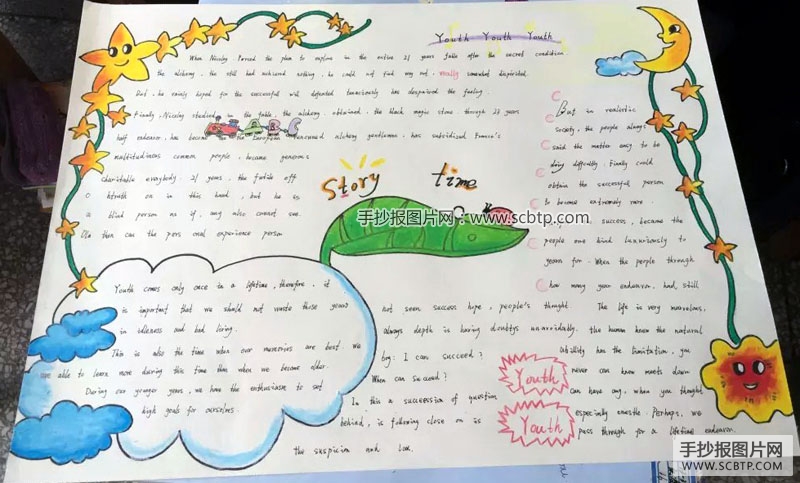 Youth Youth Youth
When Nicolay Parced the plan to explore in the entire 21 years fable after the secret condition
the alchemy, the still had achieved nothing, he could not find way out, really somewhat dispirited.
But, he easily hoped for the successful will defeated tenaciously has despaired the feeling.
Finally, Nicolay studied in the fable, the alchemy, obtained, the black magic stone, through 21 years
half endeavor, has become the European renowned alchemy gentleman, has subsidized France's
multitudinous common people, became generous
charitable everybody. 21 years, the futile off
in this hand, but he is
a blind person as if, any also cannot see.
then can the personal experience person
Story time
手抄报图片网:www.scbtp.com
But in realistic
society, the people always
said the matter easy to be
doing difficulty. Finally could
obtain the successful person
to become extremely rare.
success, became the
people one kind luxuriously to
yearn for. When the people through
how many year endeavor, had, still
not seen success hope, people's thought.
always depth is having doubtys unavoidably.
big: I can succeed?
When can succeed?
In this a succession of question
behind, is following close on is
the suspicion and lax.
Youth comes only once in a lifetime, therefore, it
is important that we should not waste those years
in idleness and bad living.
This is also the time when our memories are best. We
are able to learn more during this time than when we become older.
During our younger years, we have the enthusiasm to set
high goals for ourselves.
The life is very marvelous,
the human knew the natural
ability has the limitation, you
never can know meets down
can have any, when you thought
especially unable. Perhaps, we
pass through for a lifetime endeavor.
Youth
Youth
手抄报图片网
WWW.SCBTP.COM